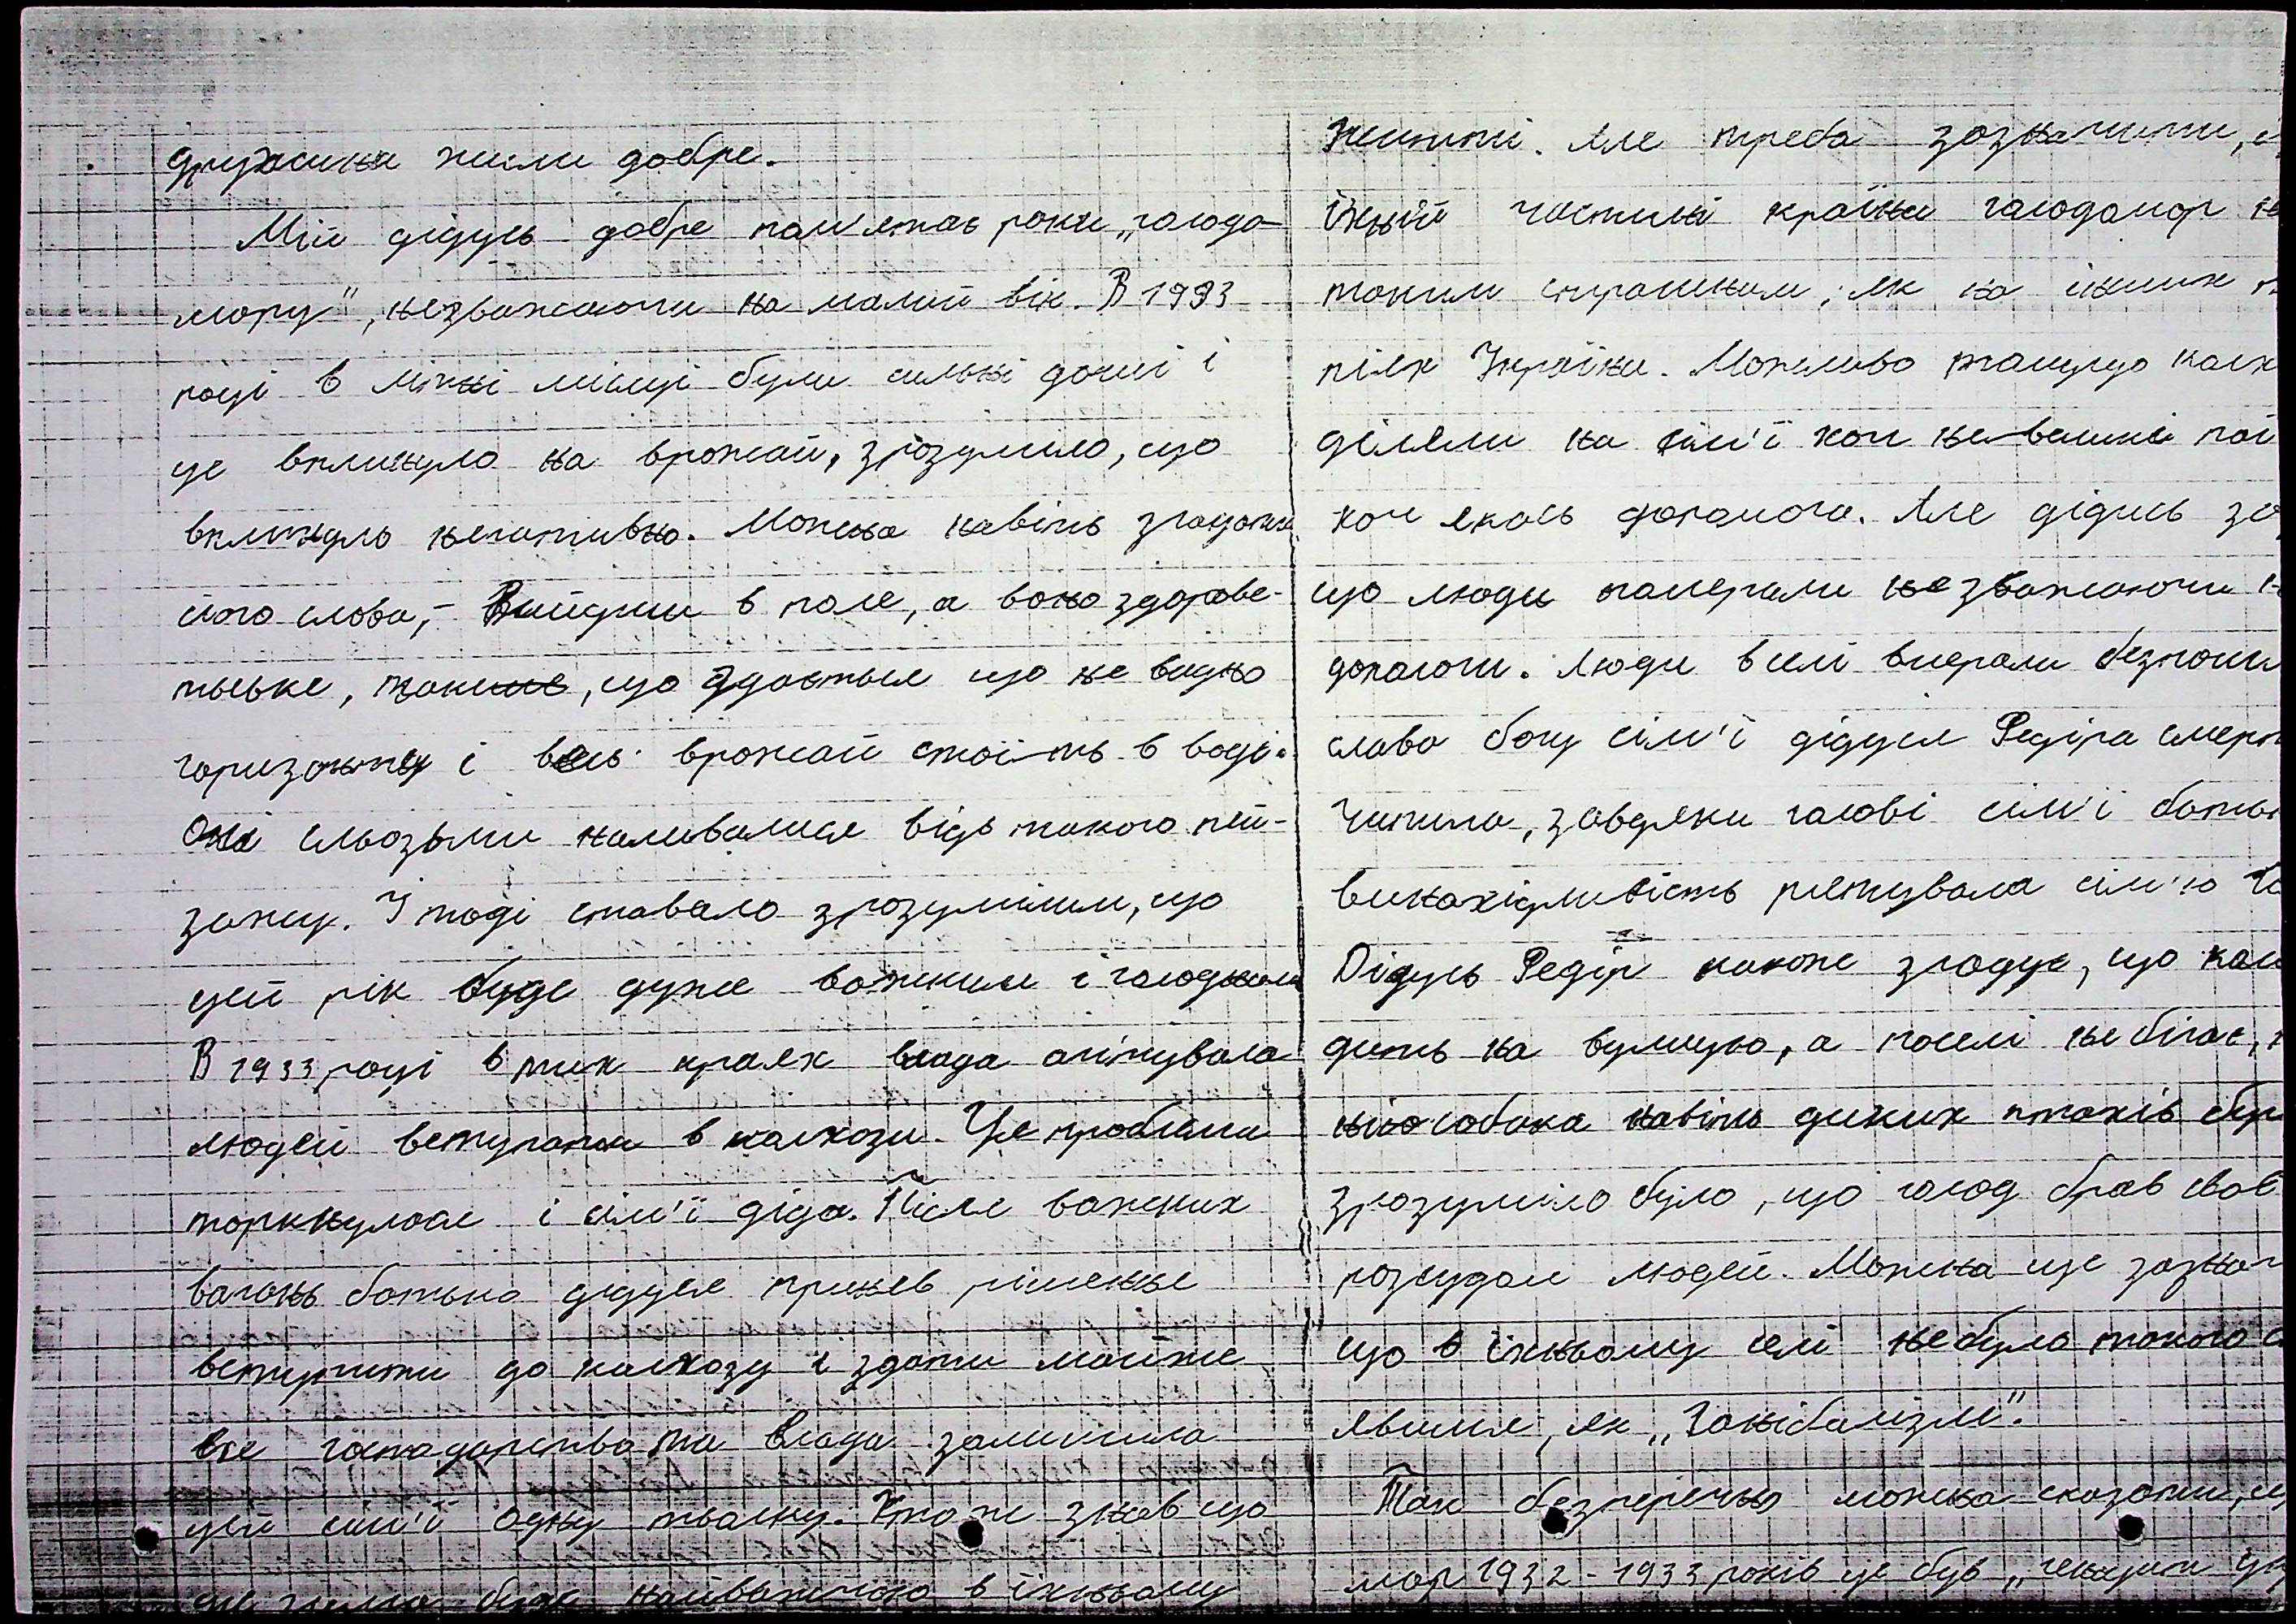 дружина жили добре.
Мій дідусь добре пам'ятає роки „голодо
мору", незважаючи на малий вік. В 1933
році в літні місяці були сильні дощі і
це вплинуло на врожай, зрозуміло, що
вплинуло негативно. Можна навіть згадати
його слова, - Вийдиш в поле, а воно здорове-
тьске, таке, що здається що не видно
горизонту і весь врожай стоїть в воді.
Очі сльозьми наливалися відь такого пей-
зажу. І тоді ставало зрозумілим, що
цей рік буде дуже важким і голодним
В 1933 році в тих краях влада агітувала
людей вступати в колхози. Ця проблема
торкнулася і сім'ї діда. Після важких
вагань батько дідуся приняв рішення
вступити до колхозу і здати майже
все господарство та влада залишила
цій сім'ї одну тваину. Хто ж знав що
ця зима буде найважчою в їхньому
житті. Але треба зазначити, щ
їхній частині країни голодомор н
таким страшним, як на інших
пілях України. Можливо тамущо колх
діляли на сім'ї хоч невеликі пої
хоч якась допомога. Але дідусь за
що люди померали незважаючи н
допомоги. Люди в селі вмерали безпощ
слава богу сім'ї дідуся Федіра смерт
чипила, завдяки голові сім'ї батьк
винахідливість рятувала сім'ю
Дідусь Федір також згадує, що кол
диш на вулицю, а по селі не бігає,
ніно собака навіть диких птахів
зрозуміло було, що голод брав своє
розсудом людей. Можна ще зазнач
що в їхньому селі не було такого
явища, як „Ганібалізм".
Так безперечно можна сказати, щ
мор 1932 - 1933 років це був „геноцид